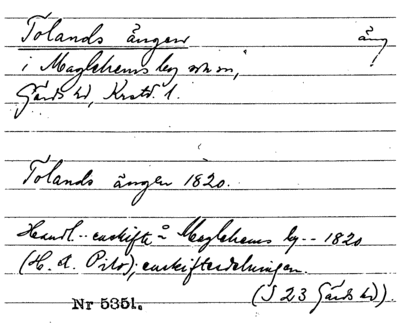 Tolands ängen äng
i Maglehems by o sn,
Gärds hd, Krstd. l.
Tolands ängen 1820.
Handl. enskifte å Maglehems by 1820
(H. A. Pihl); enskiftesdelningen.
(J 23 Gärds hd).
Nr 5351.